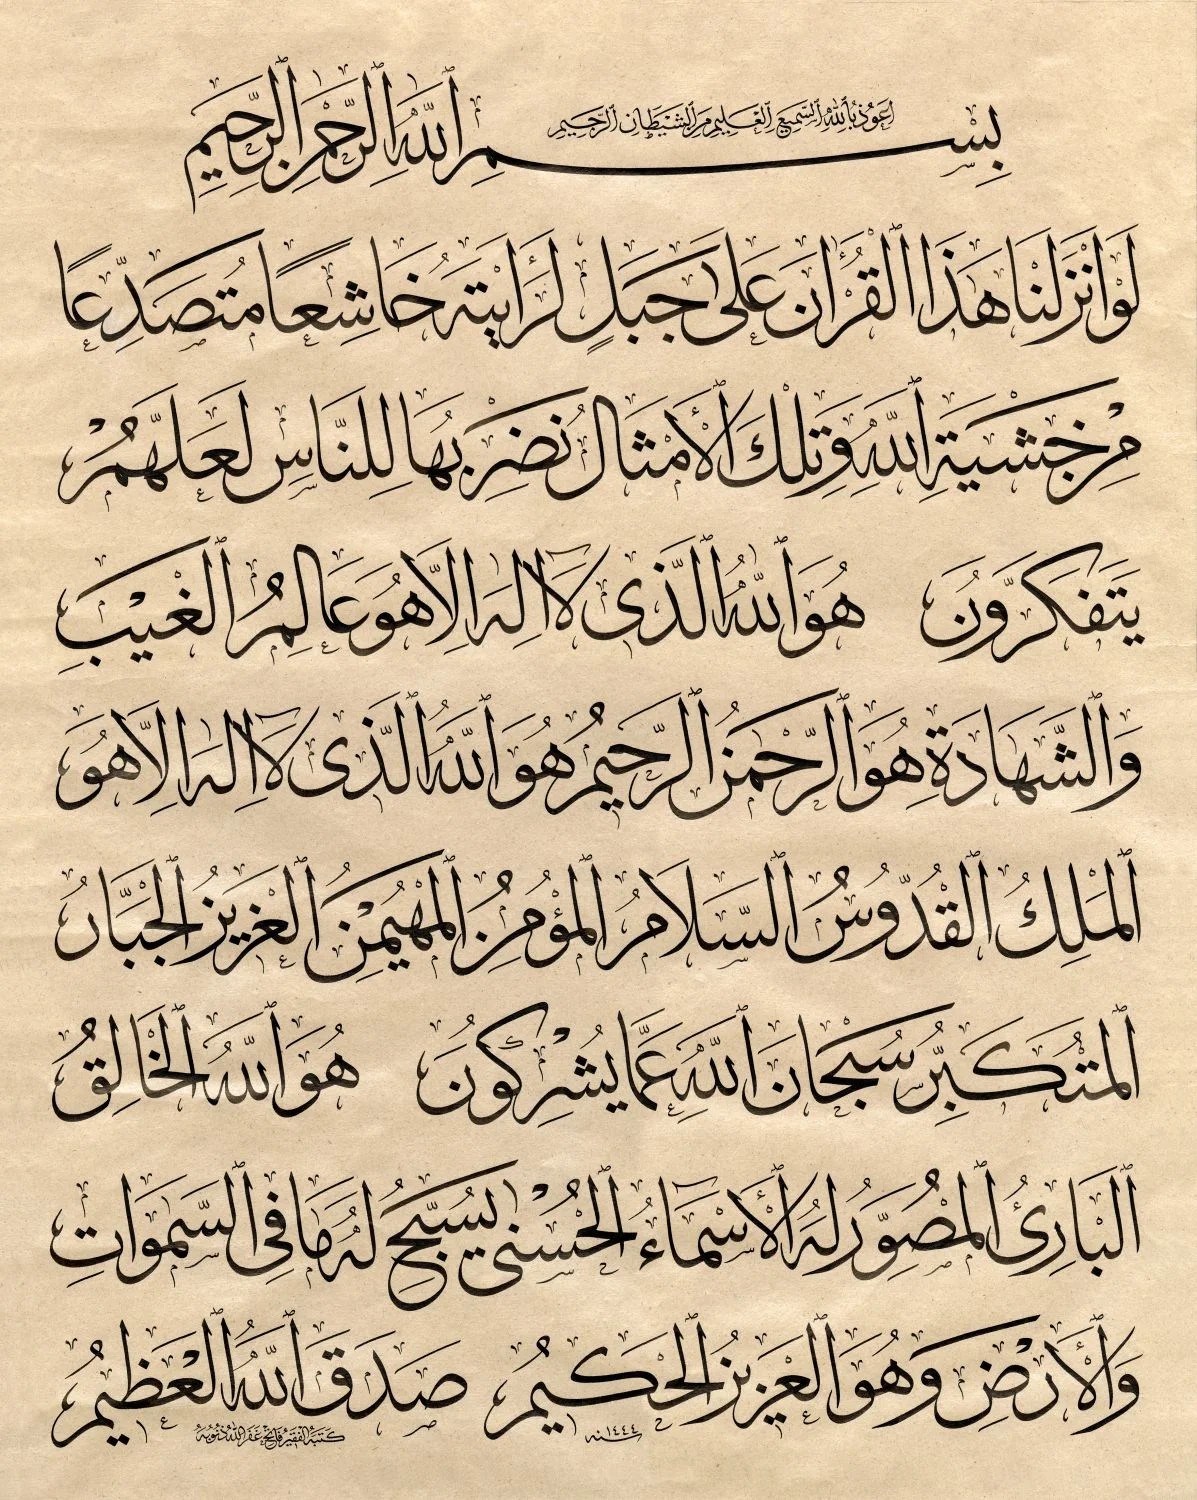 اعوذ بالله السميع العليم من الشيطان الرجيم
بِسْمِ ٱللّٰهِ ٱلرَّحْمٰنِ ٱلرَّحِيمِ
لَوْ اَنْزَلْنَا هٰذَا ٱلْقُرْاٰنَ عَلٰى جَبَلٍ لَرَاَيْتَهُ خَاشِعًا مُتَصَدِّعًا
مِنْ خَشْيَةِ ٱللّٰهِ وَتِلْكَ ٱلْأَمْثَالُ نَضْرِبُهَا لِلنَّاسِ لَعَلَّهُمْ
يَتَفَكَّرُونَ هُوَ ٱللّٰهُ ٱلَّذِى لَا اِلٰهَ اِلَّا هُوَ عَالِمُ ٱلْغَيْبِ
وَٱلشَّهَادَةِ هُوَ ٱلرَّحْمٰنُ ٱلرَّحِيمُ هُوَ ٱللّٰهُ ٱلَّذِى لَا اِلٰهَ اِلَّا هُوَ
ٱلْمَلِكُ ٱلْقُدُّوسُ ٱلسَّلَامُ ٱلْمُؤْمِنُ ٱلْمُهَيْمِنُ ٱلْعَزِيزُ ٱلْجَبَّارُ
ٱلْمُتَكَبِّرُ سُبْحَانَ ٱللّٰهِ عَمَّا يُشْرِكُونَ هُوَ ٱللّٰهُ ٱلْخَالِقُ
ٱلْبَارِئُ ٱلْمُصَوِّرُ لَهُ ٱلْأَسْمَاءُ ٱلْحُسْنٰى يُسَبِّحُ لَهُ مَا فِى ٱلسَّمٰوَاتِ
وَٱلْأَرْضِ وَهُوَ ٱلْعَزِيزُ ٱلْحَكِيمُ صَدَقَ ٱللّٰهُ ٱلْعَظِيمُ
كتبه الفقير فاتح غفر الله ذنوبه سنه ١٤٤٤